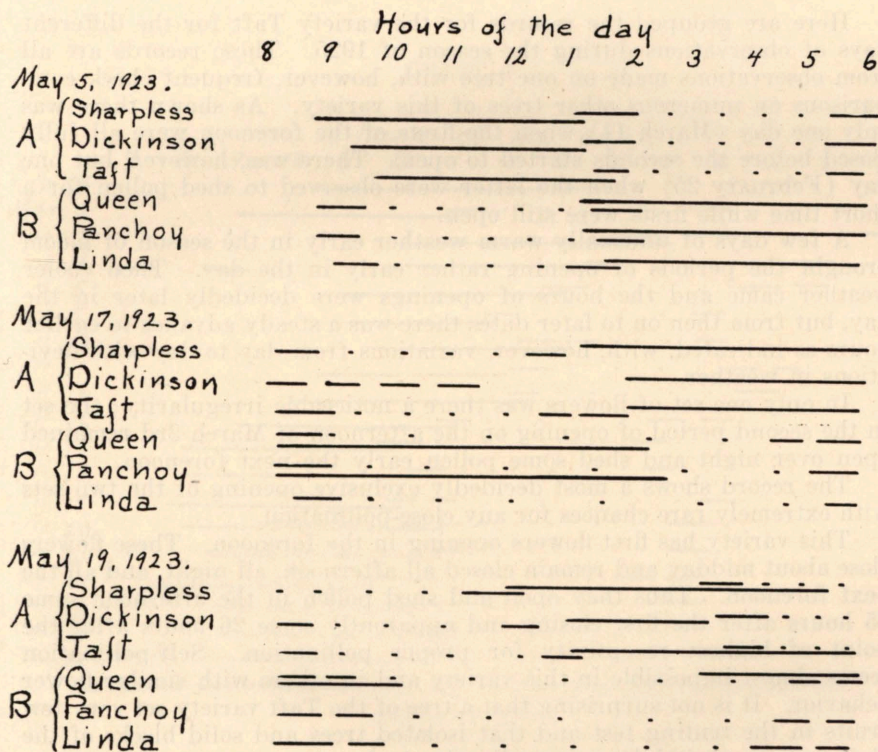 Hours of the day
8 9 10 11 12 1 2 3 4 5 6
May 5, 1923.
A
Sharpless
Dickinson
Taft
B
Queen
Panchoy
Linda
May 17, 1923.
A
Sharpless
Dickinson
Taft
B
Queen
Panchoy
Linda
May 19, 1923.
A
Sharpless
Dickinson
Taft
B
Queen
Panchoy
Linda